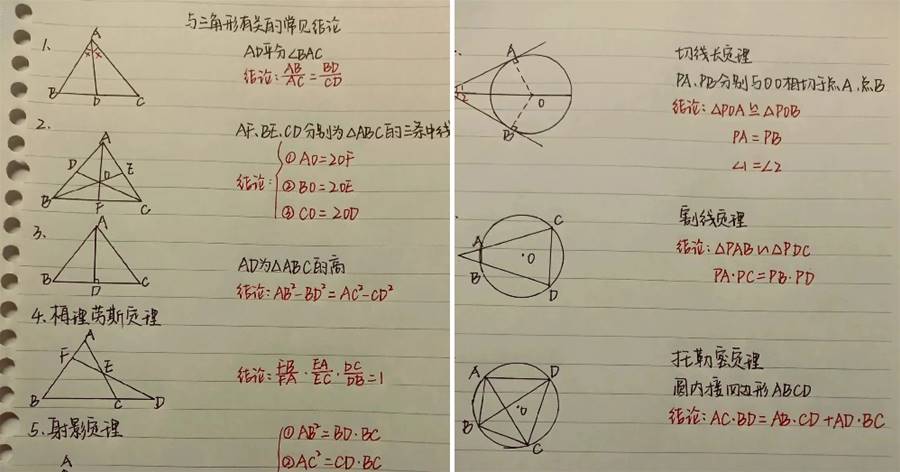 与三角形有关的常见结论
1.
A
B D C
AD平分∠BAC
结论: AB/AC = BD/CD
2.
A
D O E
B F C
AF、BE、CD分别为△ABC的三条中线
结论:
① AO=2OF
② BO=2OE
③ CO=2OD
3.
A
B D C
AD为△ABC的高
结论: AB²-BD²=AC²-CD²
4、梅涅劳斯定理
A
F E
B C D
结论: FB/FA · EA/EC · DC/DB =1
5、射影定理
A
① AB²=BD·BC
② AC²=CD·BC
A
1
2
O
B
切线长定理
PA、PB分别与⊙O相切于点A、点B
结论: △POA≌△POB
PA=PB
∠1=∠2
C
A
O
B
D
割线定理
结论: △PAB∽△PDC
PA·PC=PB·PD
A D
O
B
C
托勒密定理
圆内接四边形ABCD
结论: AC·BD=AB·CD+AD·BC